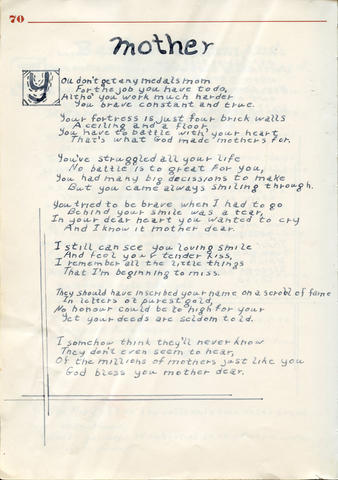 70
mother
You don't get any medals mom
For the job you have to do,
Altho' you work much harder
You brave constant and true.
Your fortress is just four brick walls
A ceiling and a floor,
You have to battle with your heart
That's what God made mothers for.
You've struggled all your life
No battle is to great for you,
You had many big decissions to make
But you came always smiling through.
You tried to be brave when I had to go
Behind your smile was a tear,
In your dear heart you wanted to cry
And I know it mother dear.
I still can see you loving smile
And feel your tender kiss,
I remember all the little things
That I'm beginning to miss.
They should have inscribed your name on a scroll of fame
In letters of purest gold,
No honour could be to high for your
Yet your deeds are seldom told.
I somehow think they'll never know
They don't even seem to hear,
Of the millions of mothers just like you
God bless you mother dear.